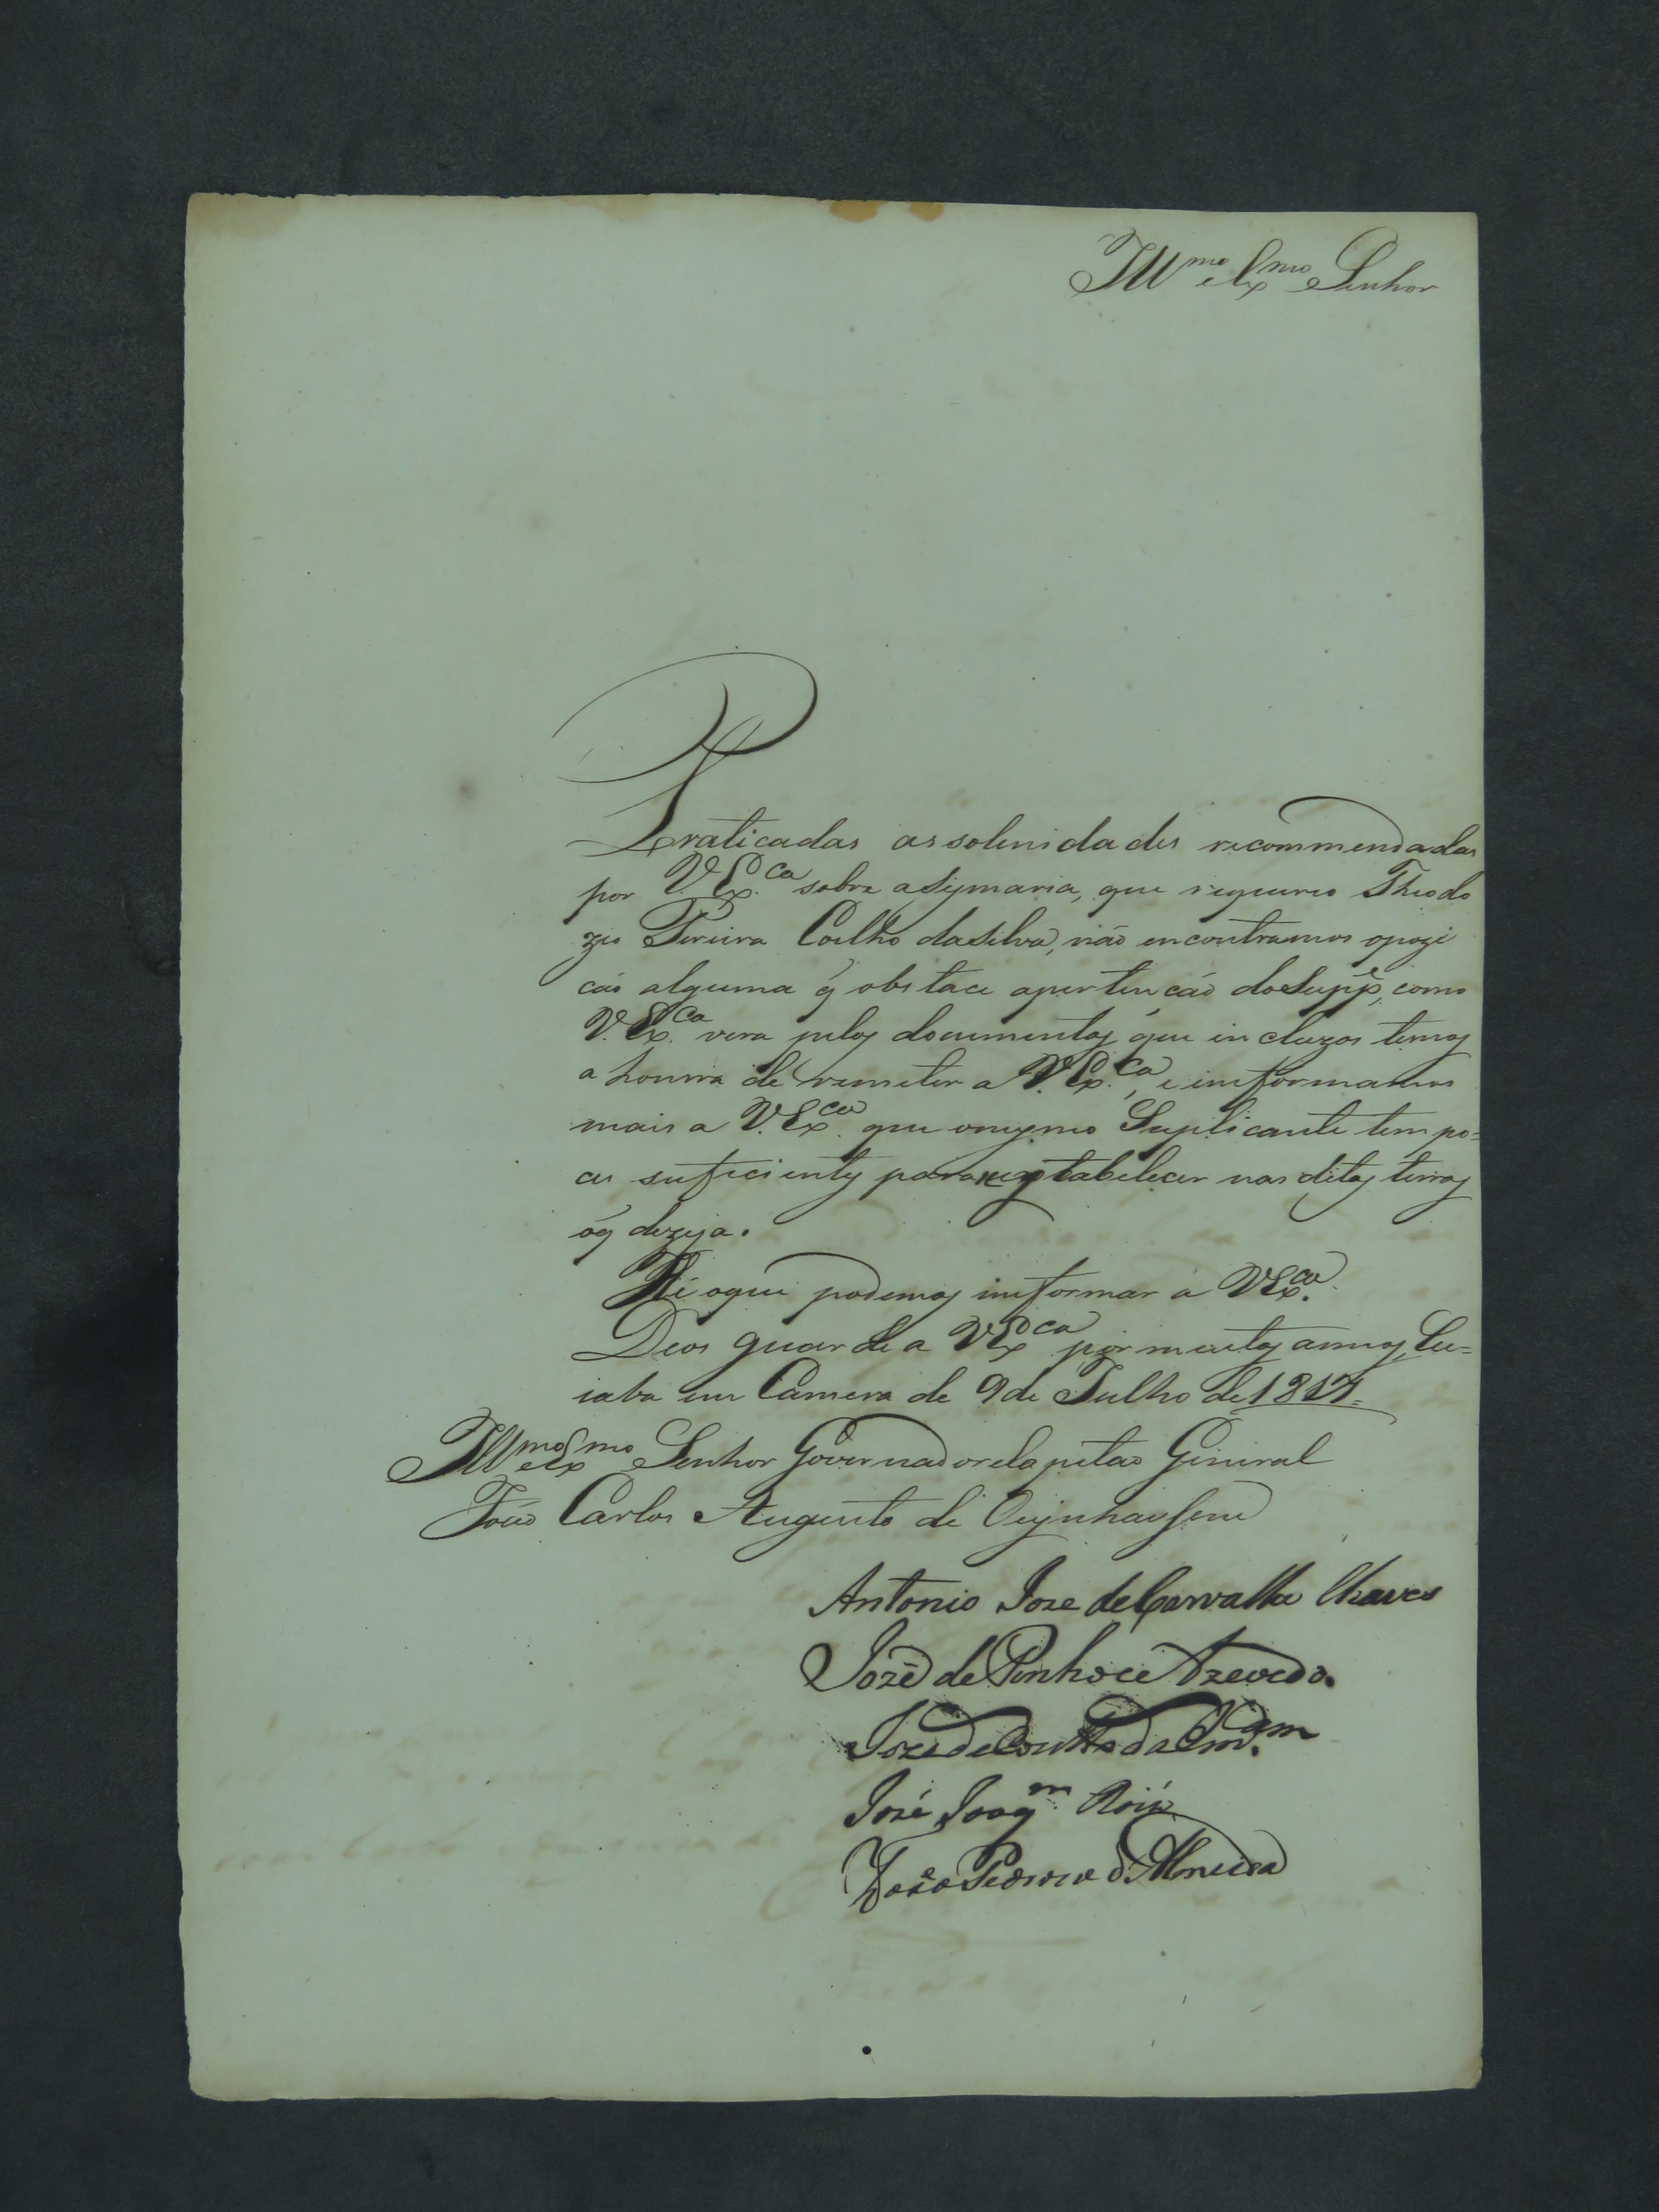 Ill.mo e Ex.mo Senhor
Praticadas as solenidades recommendadas
por V. Ex.ca sobre a Sysmaria, que requereo Theodo
zio Pereira Coelho da Silva, não encontramos opozi
cáo alguma q̃ obstace apertencáo do Supp.e, como
V. Ex.ca vera pelos documentos que incluzos temos
a honrra de remeter a V. Ex.ca, e imformamos
mais a V. Ex.ca que omesmo Suplicante tem po=
ces suficientes para restabelecer nas ditas terras
oq̃ dezeja.
He oque podemos imformar a V Ex.ca
Deos guarde a V Ex.ca por muitos annos, Cu=
iaba em Camera de 9 de Julho de 1817.
Ill.mo e Ex.mo Senhor Governador e Capitao General
João Carlos Augusto de Oeynhausem
Antonio Joze de Carvalho Chaves
Jozé de Pinho e Azevedo.
Joze de Coutto da
José Joaq.m Roiz
João Pedrozo d'Almeida